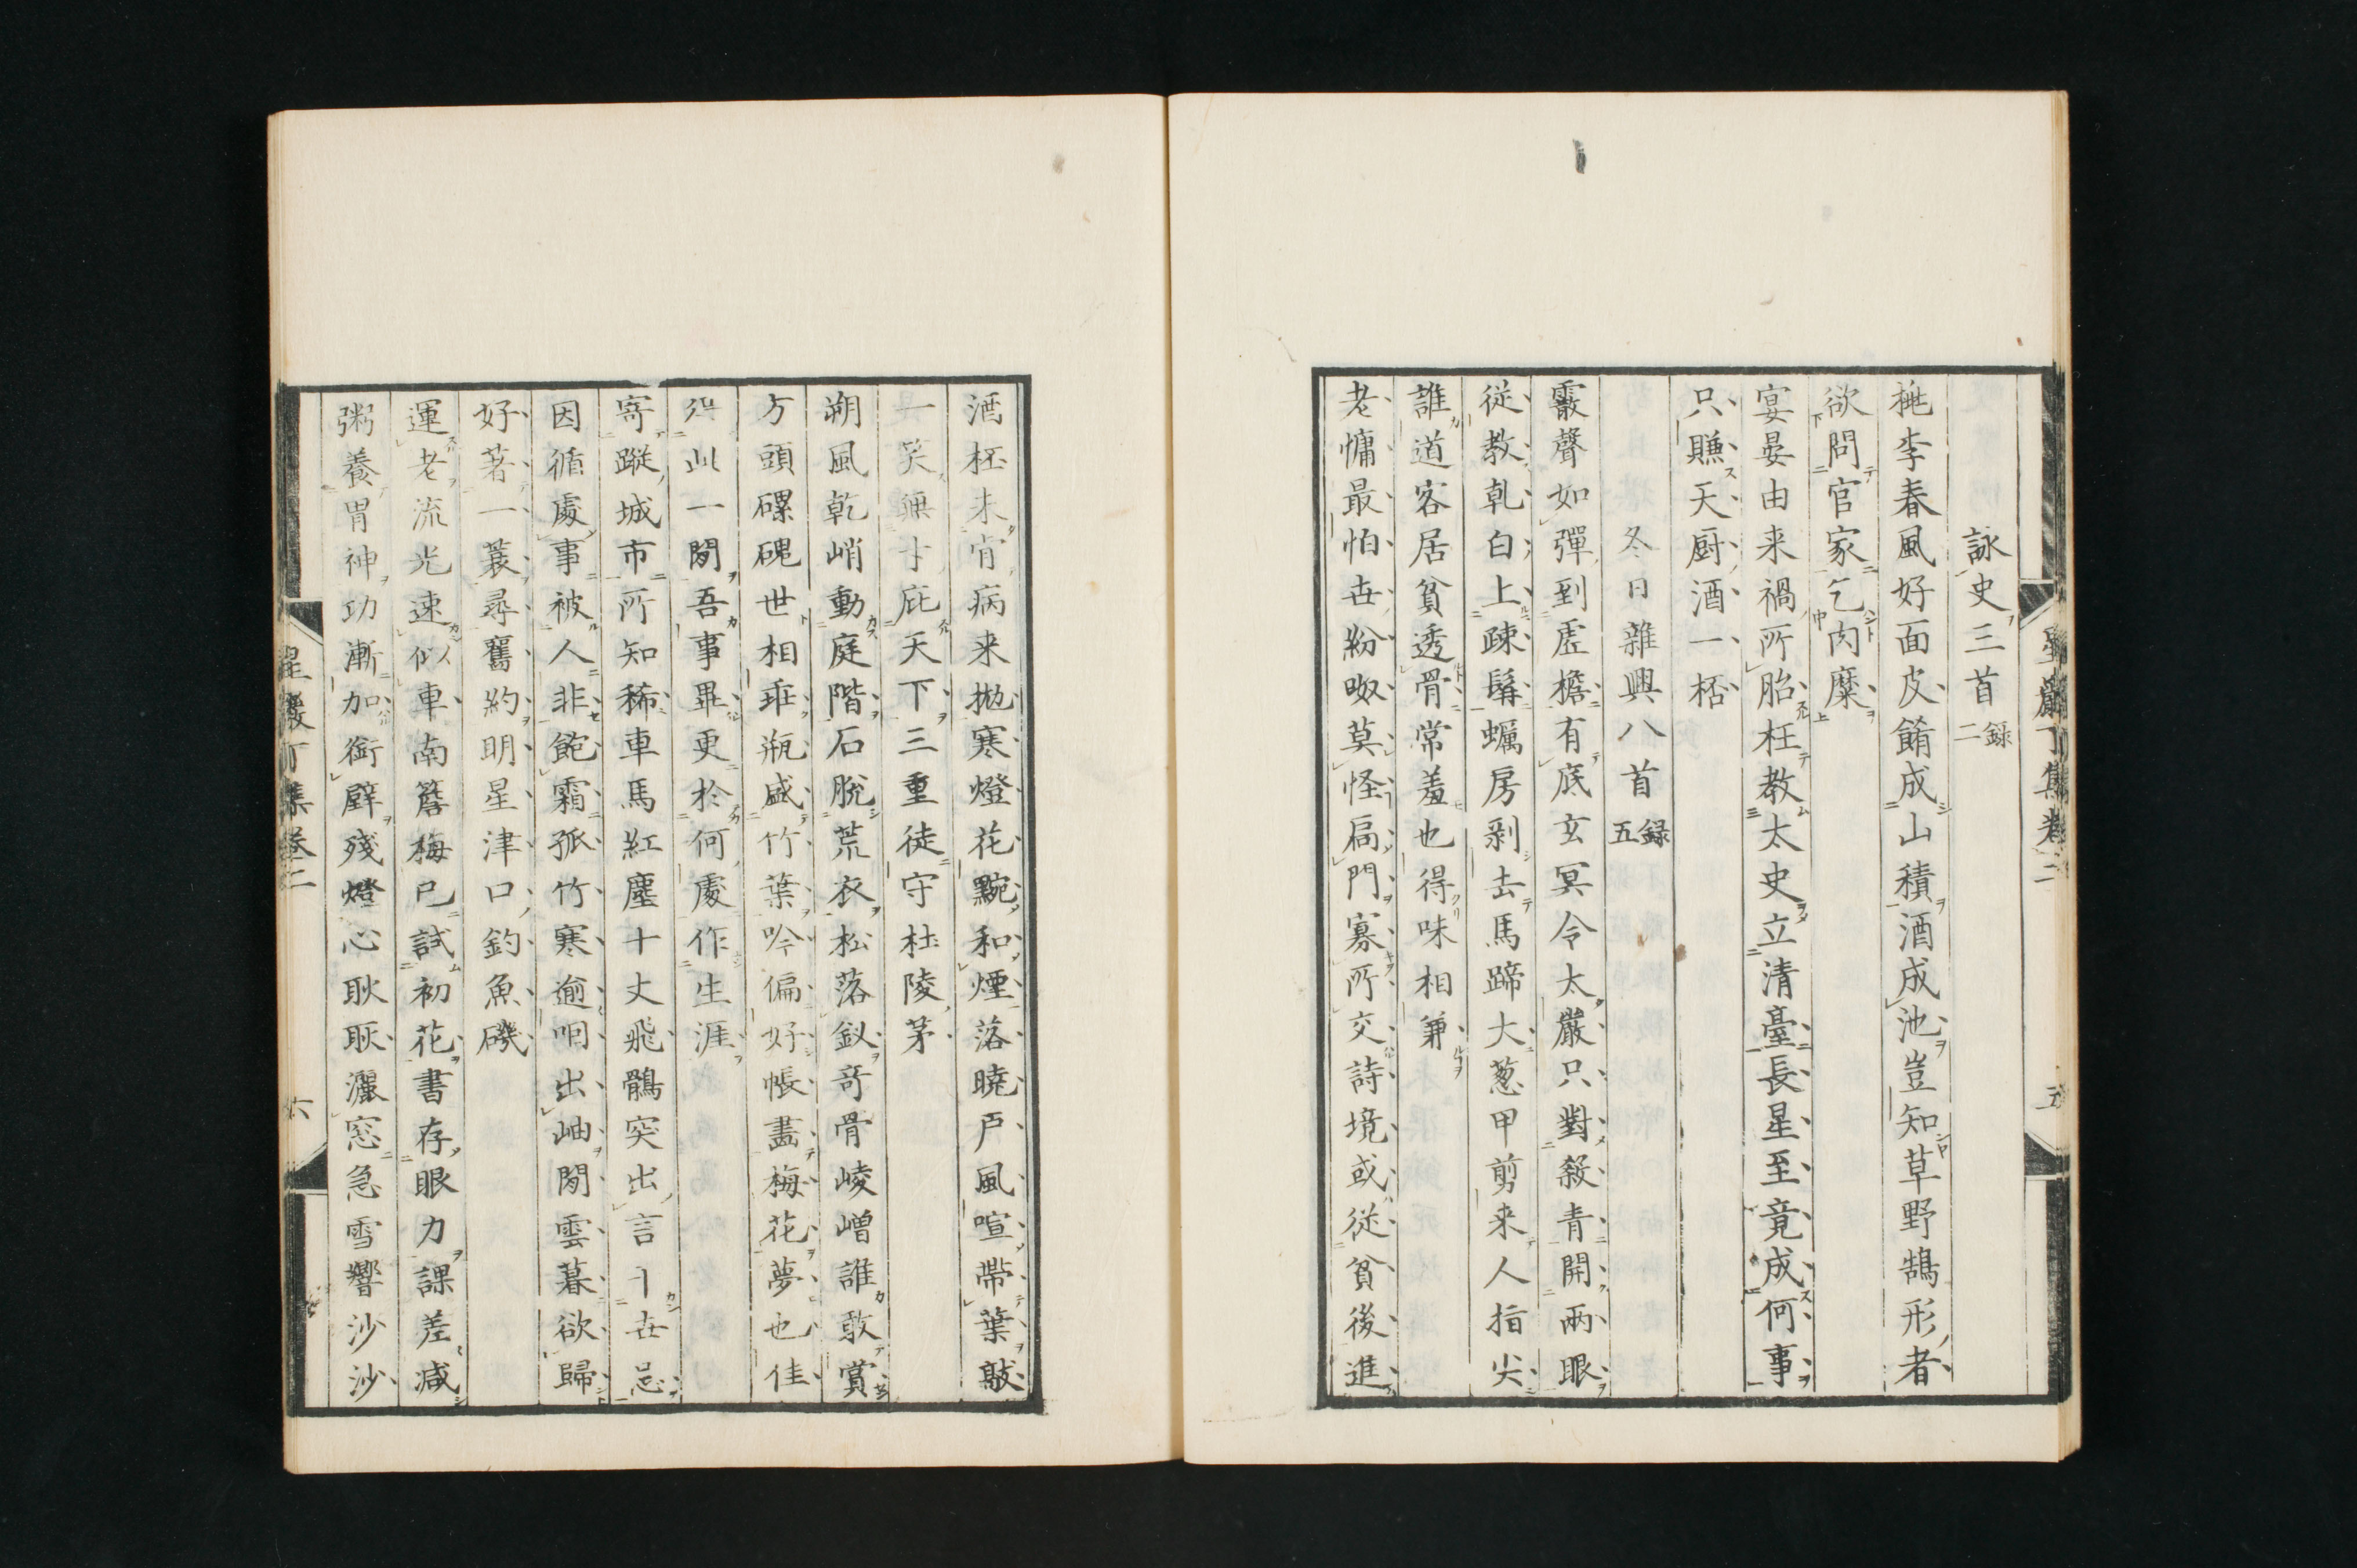 星巖丁集卷二
五
詠史三首錄二
桃李春風好面皮餚成山積酒成池豈知草野鵠形者
欲問官家乞肉糜
宴晏由来禍所胎枉教太史立清臺長星至竟成何事
只賺天厨酒一桮
冬日雜興八首錄五
霰聲如彈到虛檐有底玄冥令太嚴只對殺青開兩眼
從教乾白上疎髯蠣房剥去馬蹄大葱甲剪来人指尖
誰道客居貧透骨常羞也得味相兼
老慵最怕世紛呶莫怪扃門寡所交詩境或從貧後進
酒桮未肯病来拋寒燈花黦和煙落曉戶風喧帶葉敲
一笑無才庇天下三重徒守杜陵茅
朔風乾峭動庭階石脫荒衣松落釵奇骨崚嶒誰敢賞
方頭磥磈世相乖瓶盛竹葉吟偏好帳畫梅花夢也佳
此一閒吾事畢更於何處作生涯
寄蹤城市所知稀車馬紅塵十丈飛鶻突出言世忌
因循處事被人非飽霜孤竹寒逾㘞出岫閒雲暮欲歸
好著一蓑尋舊約明星津口釣魚磯
運老流光速似車南簷梅已試初花書存眼力課差減
粥養胃神功漸加銜壁殘燈心耿耿灑窓急雪響沙沙
星巖丁集卷二
六